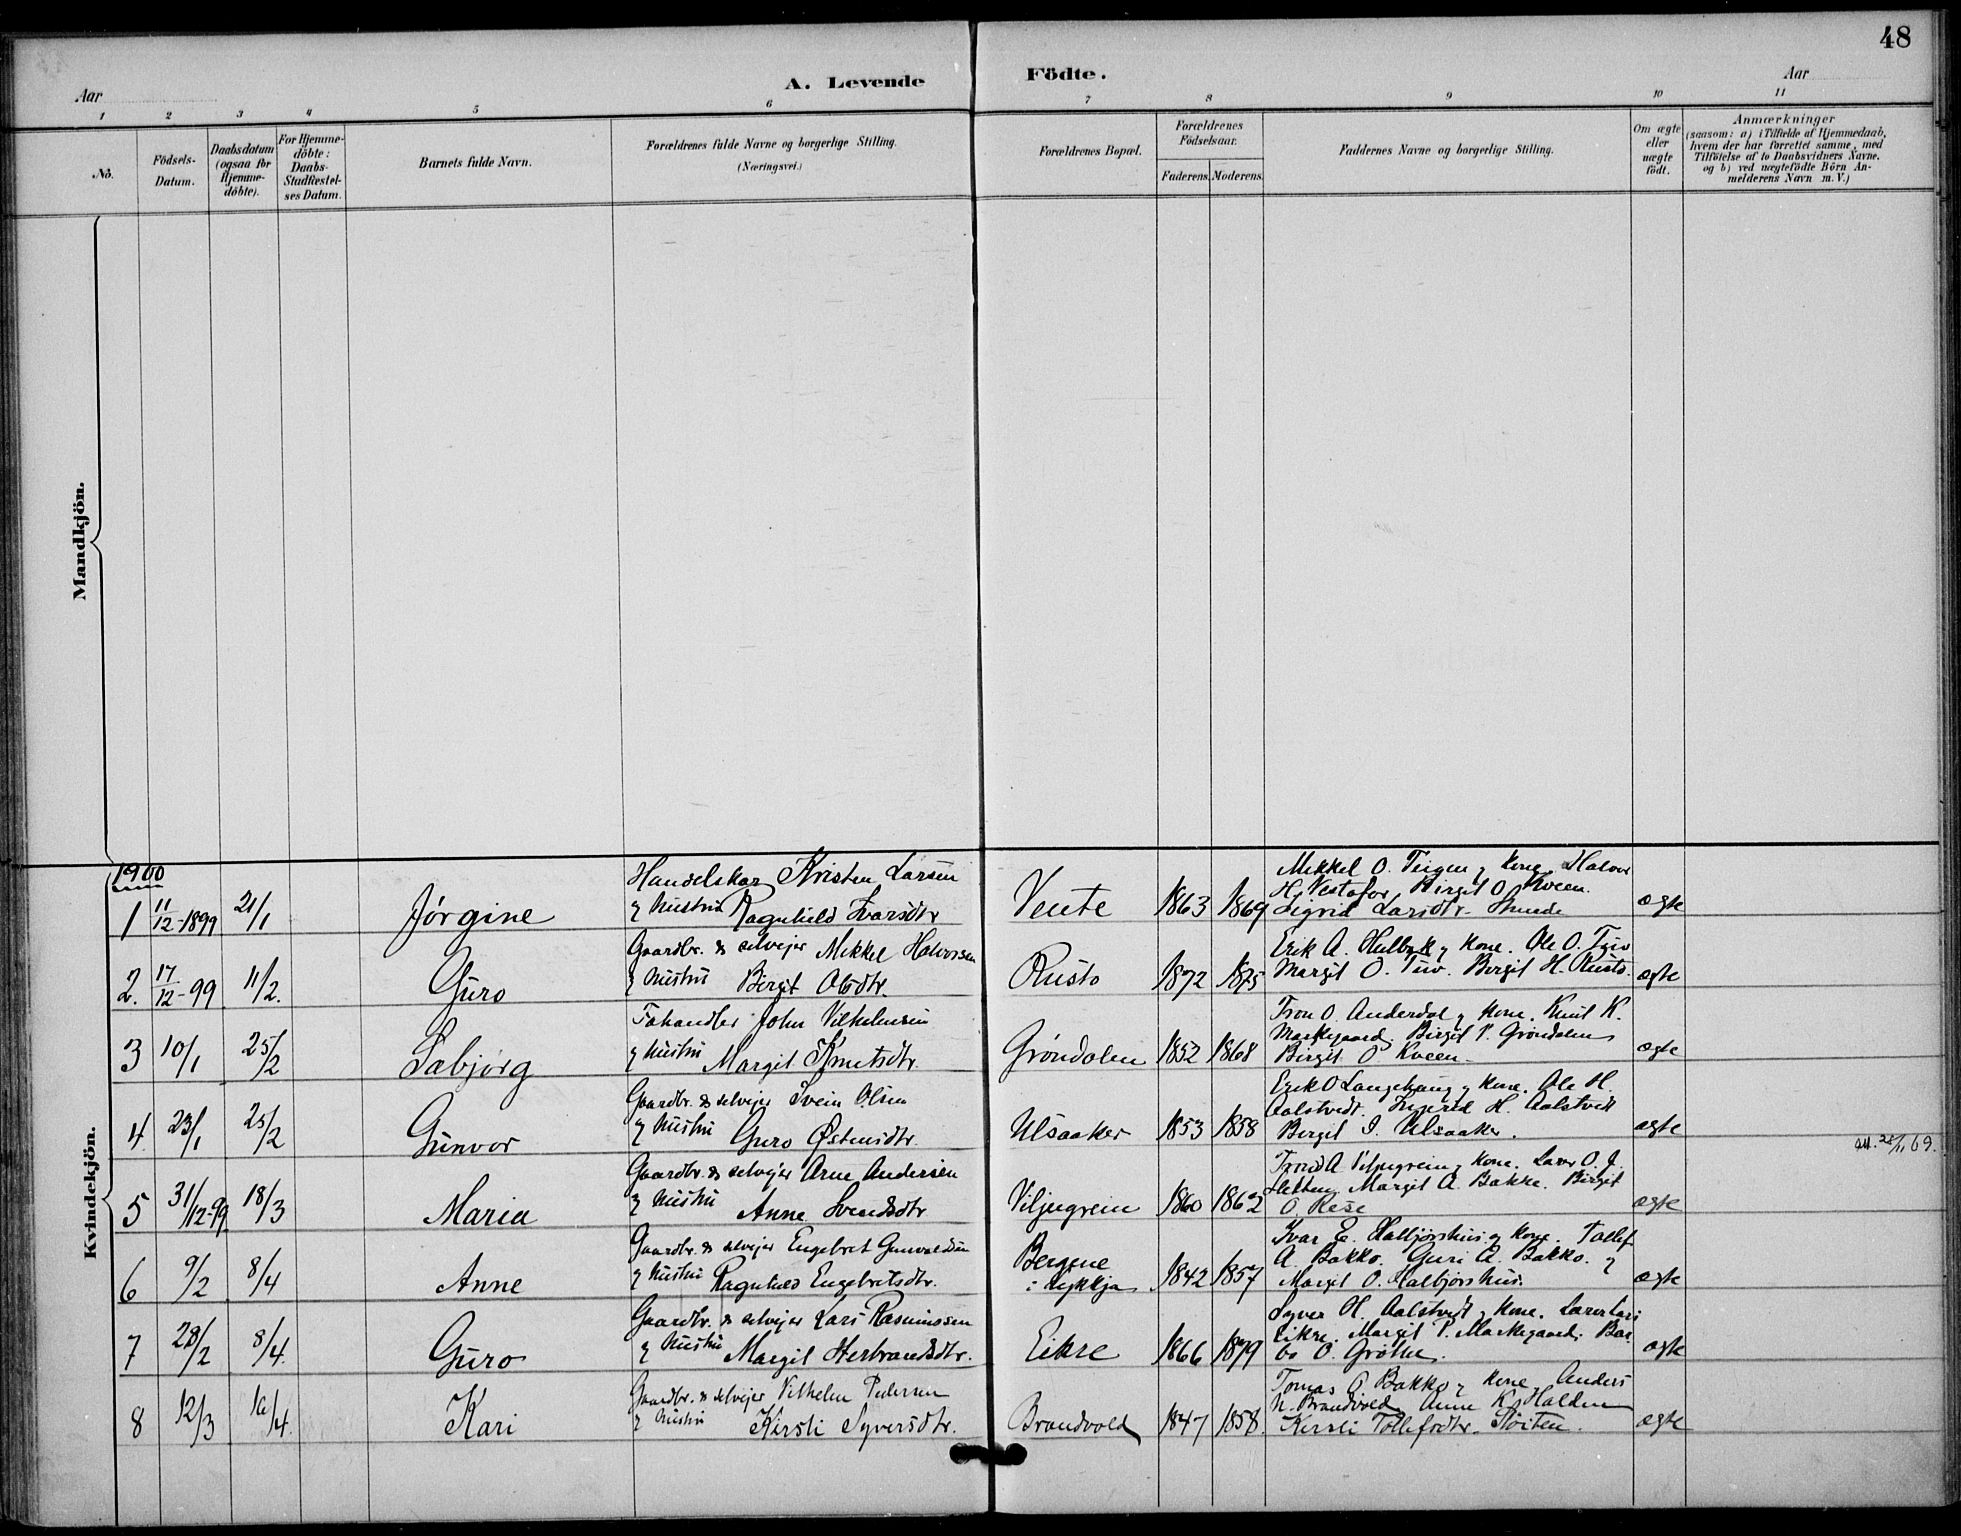 48
Aar
A. Levende
Födte.
Aar
1 2 3 4 5 6 7 8 9 10 11
No.
Födsels-
Datum.
Daabsdatum
(ogsaa for
Hjemme-
döbte).
For Hjemme-
döbte:
Daabs-
Stadfæstel-
ses Datum.
Barnets fulde Navn.
Forældrenes fulde Navne og borgerlige Stilling.
(Næringsvei.)
Forældrenes Bopæl.
Forældrenes
Födselsaar.
Faderens. Moderens.
Faddernes Navne og borgerlige Stilling.
Om ægte
eller
uægte
födt.
Anmærkninger
(saasom: a) i Tilfælde af Hjemmedaab,
hvem der har forrettet samme, med
Tilföielse af to Daabsvidners Navne.
og b) ved uægtefödte Börn An-
melderens Navn m. V.)
Mandkjön.
Kvindekjön.
1900
1 11/12-1899 21/1 Jørgine
Handelskar Kristen Larsen
& Hustru Ragnhild Ivarsdtr
Vente 1863 1869
Mikkel O. Teigen & Kone. Halvor
H. Vestafor Birgit O. Kveen.
Sigrid Larsdtr.
ægte
2. 17/12-99 11/2. Guro
Gaardbr. & selvejer Mikkel Halvorsen
& Hustru Birgit Olsdtr.
Rusto 1872 1875
Erik A. Hulbak & Kone. Ole O. Tuv
Margit O. Tuv. Bergit H. Rusto.
ægte
3 10/1 25/2 Sabjørg
Fahandler John Vilhelmsen
& Hustru Margit Knutsdtr.
Grøndalen 1852 1868
Tron O. Anderdal & Kone. Knut K.
Markegaard. Birgit P. Grøndalen
Birgit O Kveen
ægte
4. 23/1 25/2 Gunvor
Gaardbr. & selvejer Svein Olsen
& Hustru Guro Østensdtr.
Ulsaaker 1853 1858
Erik O Langehaug & Kone. Ole H.
Aalstvedt. Ingrid H. Aalstvedt
Bergit I. Ulsaaker.
ægte
28/11 69.
5 31/12-99 18/3 Maria
Gaardbr. & selvejer Arne Andersen
& Hustru Anne Svendsdtr
Viljugrein 1860 1862
Trond A Viljugrein & Kone. Lærer O. J.
Margit A. Bakke. Birgit
O. Rese
ægte
6 9/2 8/4 Anne
Gaardbr. & selvejer Engebret Gunvaldsen
& Hustru Ragnhild Engebretsdtr.
Bergene
i Lykkja 1842 1857
Ivar E. Halbjørshus & Kone. Tollef
A. Bakko. Guri A. Bakko. &
Margit O. Halbjørshus.
ægte
7 28/2 8/4. Guro
Gaardbr. & selvejer Lars Rasmussen
& Hustru Margit Herbrandsdtr.
Eikre 1866 1879
Syver H. Aalstvedt & Kone. Lærer Lars
Eikre. Margit P. Markegaard. Bar-
bo O. Grøthe.
ægte
8 12/3 16/4. Kari
Gaardbr. & selvejer Vilhelm Pedersen
& Hustru Kirsti Syversdtr.
Brandvold 1847 1858.
Tomas O. Bakko & Kone Anders
N. Brandvold Anne K. Halden
Kirsti Tollefsdtr. Støiten.
ægte